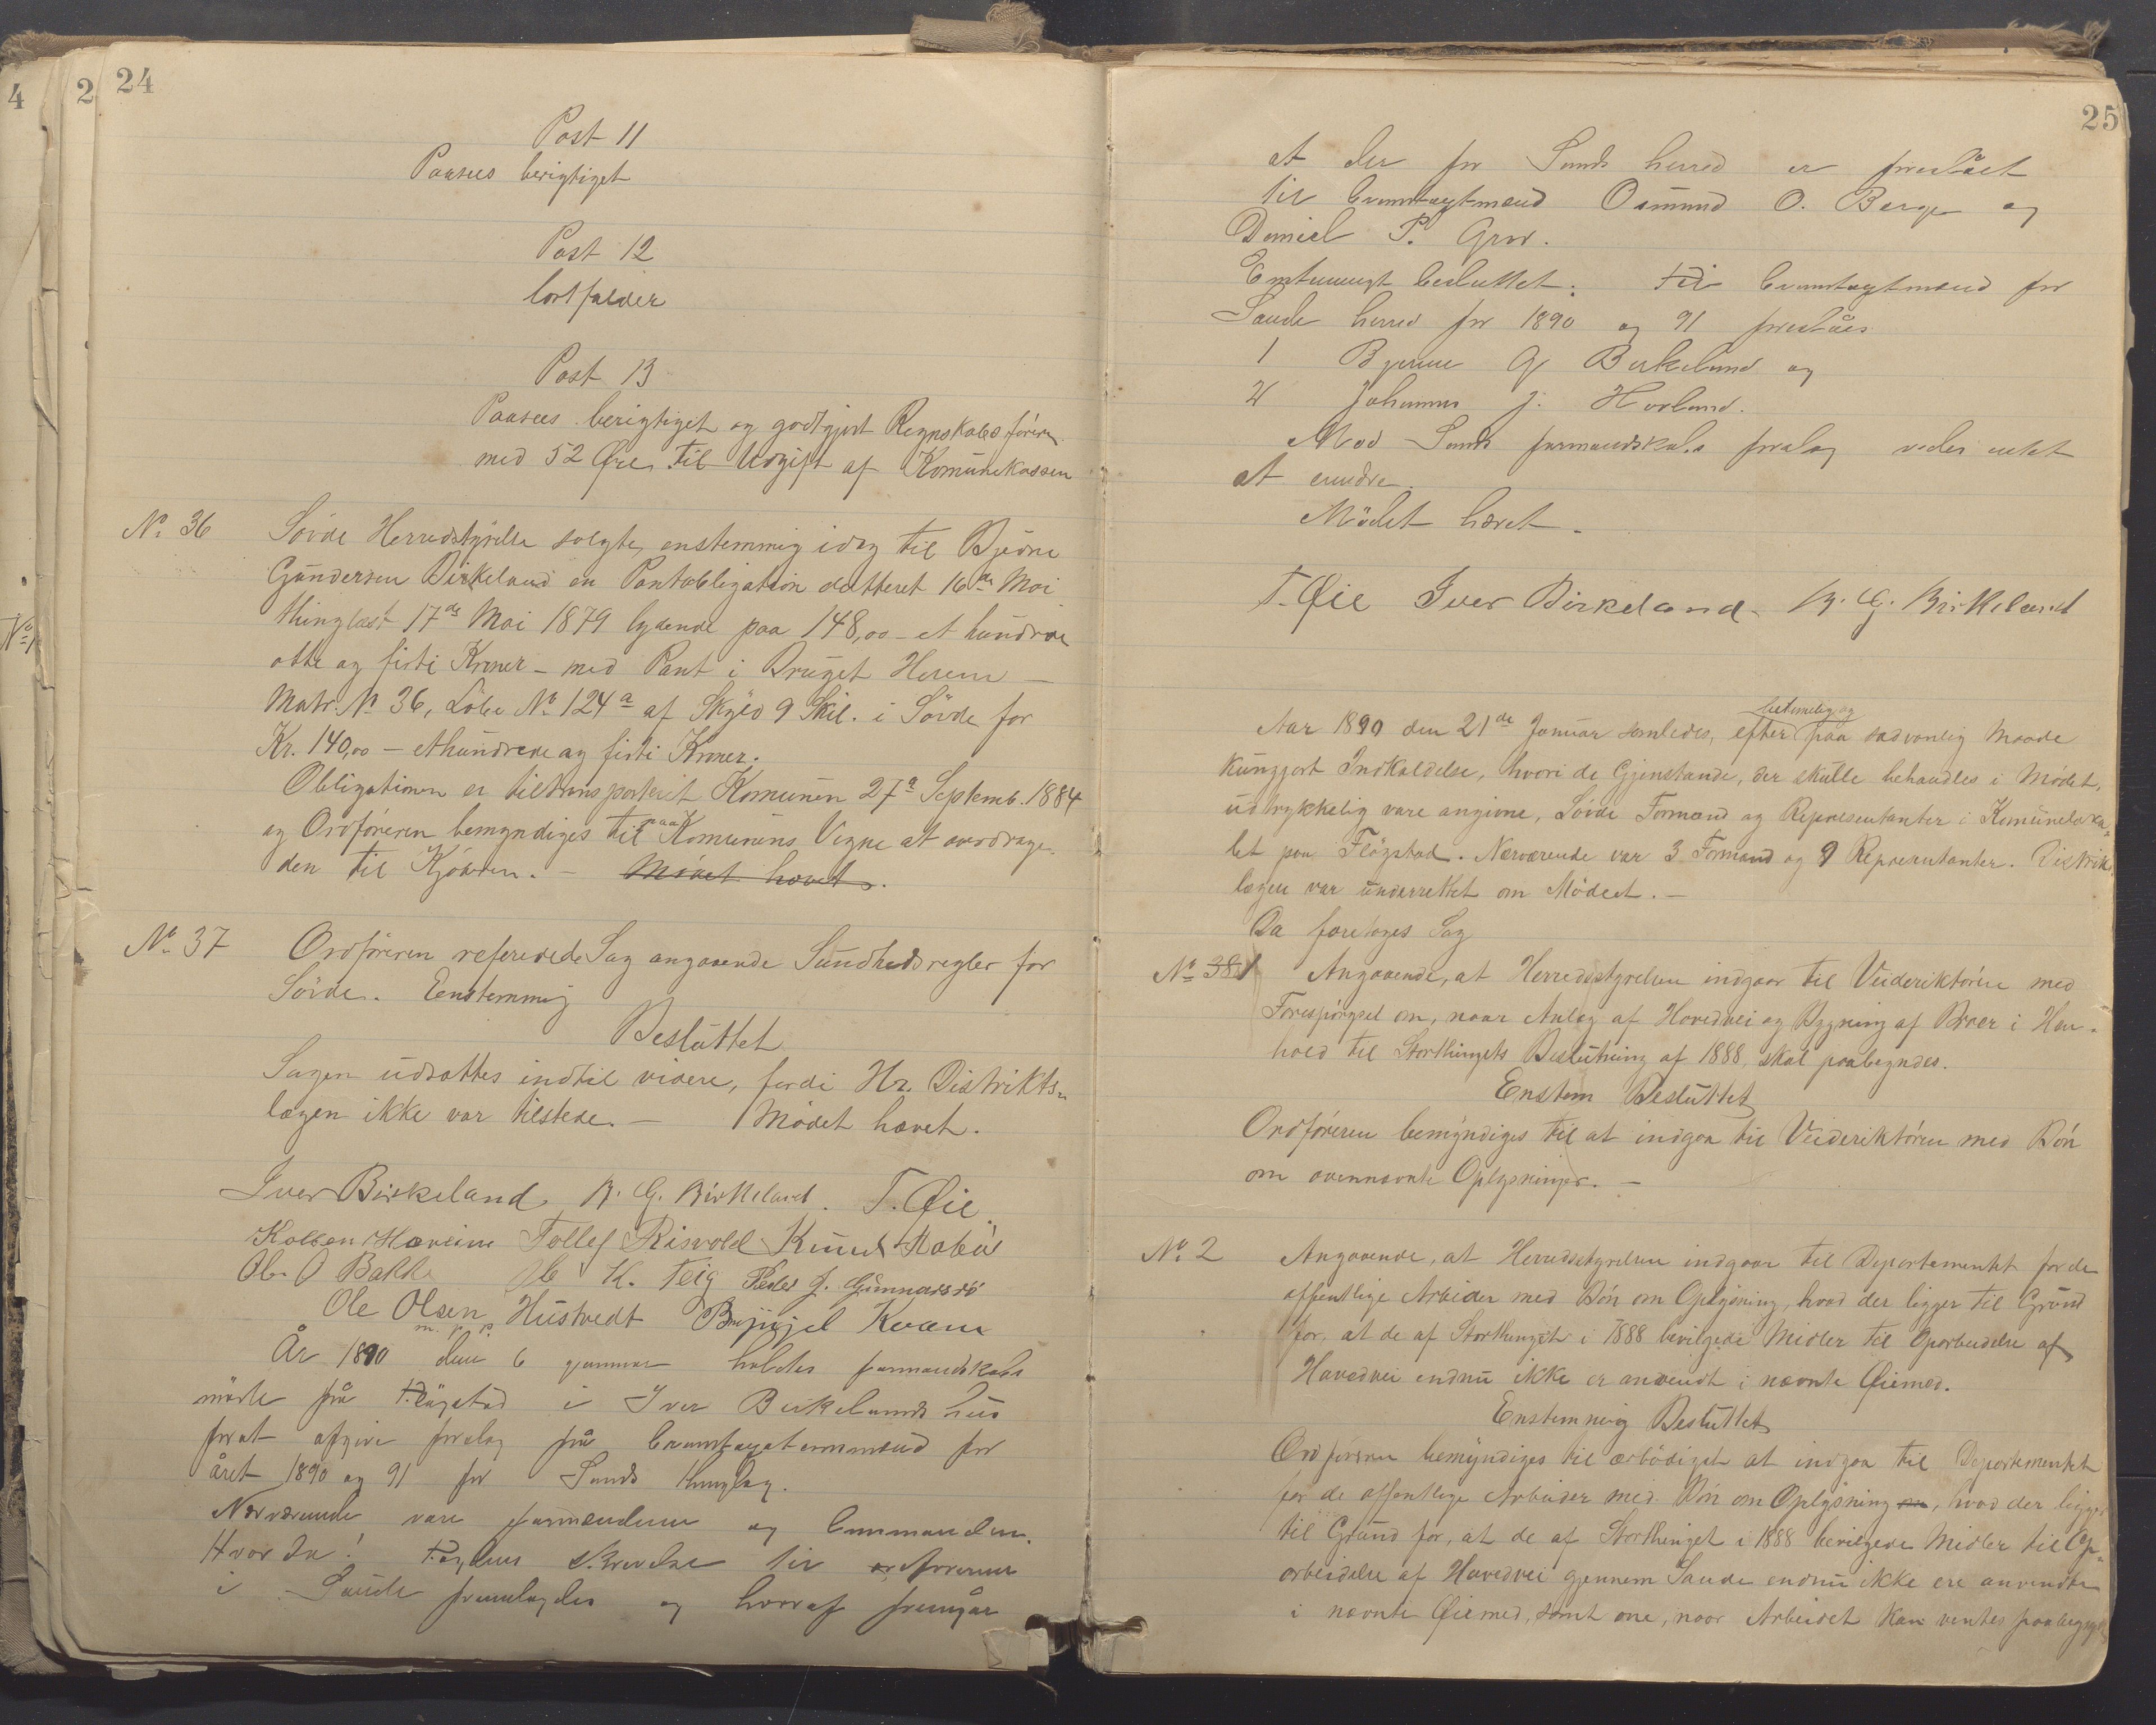 24
Post 11
Paasees berigtiget
Post 12
bortfalder
Post 13
Paasees berigtiget og godtgjort Regnskabsföreren
med 52 Øre til Udgift af Komunekassen
No 36 Sövde Herredstyrelse solgte, enstemmig idag til Bjerne
Gundersen Birkeland en Pantobligation datteret 16de Mai
thinglæst 17de Mai 1879 lydende paa 148,00 - et hundrede
otte og firti Kroner - med Pant i Bruget
Matr. No 36, Löbe No 124a af Skyld 9 Skil. i Sövde for
Kr. 140,00 - ethundrede og firti Kroner.
Obligationen er tiltransporteret Komunen 27de Septemb. 1884
og Ordföreren bemyndiges til paa Komunens Vegne at overdrage
den til Kjöberen. - Mödet hævet.
No 37 Ordföreren refererede Sag angaaende Sundhedsregler for
Sövde. Eenstemmig
Besluttet
Sagen udsattes indtil videre, fordi Hr. Distrikts-
lægen ikke var tilstede. - Mödet hævet.
Iver Birkeland B. G. Birkeland. T. Øie.
Kolben Tollef Risvold Knud
Ole O Bakke Ole K. Teig Peder J.
Ole Olsen Hustvedt Kvam
m. p. p.
År 1890 den 6 januar holdtes formandskabs
möde på i Iver Birkelands hus
forat afgive forslag på for
året 1890 og 91 for Sands thinglag.
Nærværende vare formændene og
Hvor da! skrivelse til ordföreren
i Saude fremlagdes og hvoraf fremgår
25
at der for Sands herred er foreslået
til Osmund O. Berge og
Daniel P.
Enstemmigt besluttet: til for
Saude herred for 1890 og 91 foreslåes
1 Bjerne G Birkeland og
2 Johannes J.
Mod Sands formandskabs forslag vides intet
at erindre.
Mödet hævet.
T. Øie Iver Birkeland B. G. Birkeland
betimelig og
Aar 1890 den 21de Januar samledes, efter paa sædvanlig Maade
kungjort Indkaldelse, hvori de Gjenstande, der skulle behandles i Mødet,
udtrykkelig vare angivne, Sövde Formænd og Representanter i Komuneloka-
let paa Flögstad. Nærværende var 3 Formænd og 9 Representanter. Distrik.
lægen var underrettet om Mödeet. -
Da foretoges Sag
No 38 1 Angaaende, at Herredsstyrelsen indgaar til Veideriktören med
Forespörgsel om, naar Anlæg af Hovedvei og Bygning af Broer i Hen-
hold til Storthingets Beslutning af 1888, skal paabegyndes.
Enstem Besluttet
Ordföreren bemyndiges til at indgaa til Veideriktören med Bön
om ovennævnte Oplysninger. -
No 2 Angaaende, at Herredsstyrelsen indgaar til Departementet for de
offentlige Arbeider med Bön om Oplysning, hvad der ligger til Grund
for, at de af Storthinget i 1888 bevilgede Midler til Oparbeidelse af
Hovedvei endnu ikke er anvendt i nævnte Øiemed.
Enstemmig Besluttet
Ordföreren bemyndiges til ærbödigst at indgaa til Departementet
for de offentlige Arbeider med Bön om Oplysning om, hvad der ligger
til Grund for, at de af Storthinget i 1888 bevilgede Midler til Op-
arbeidelse af Hovedvei gjennem Saude endnu ikke ere anvendte
i nævnte Øiemed, samt om, naar Arbeidet kan ventes paabegyndt